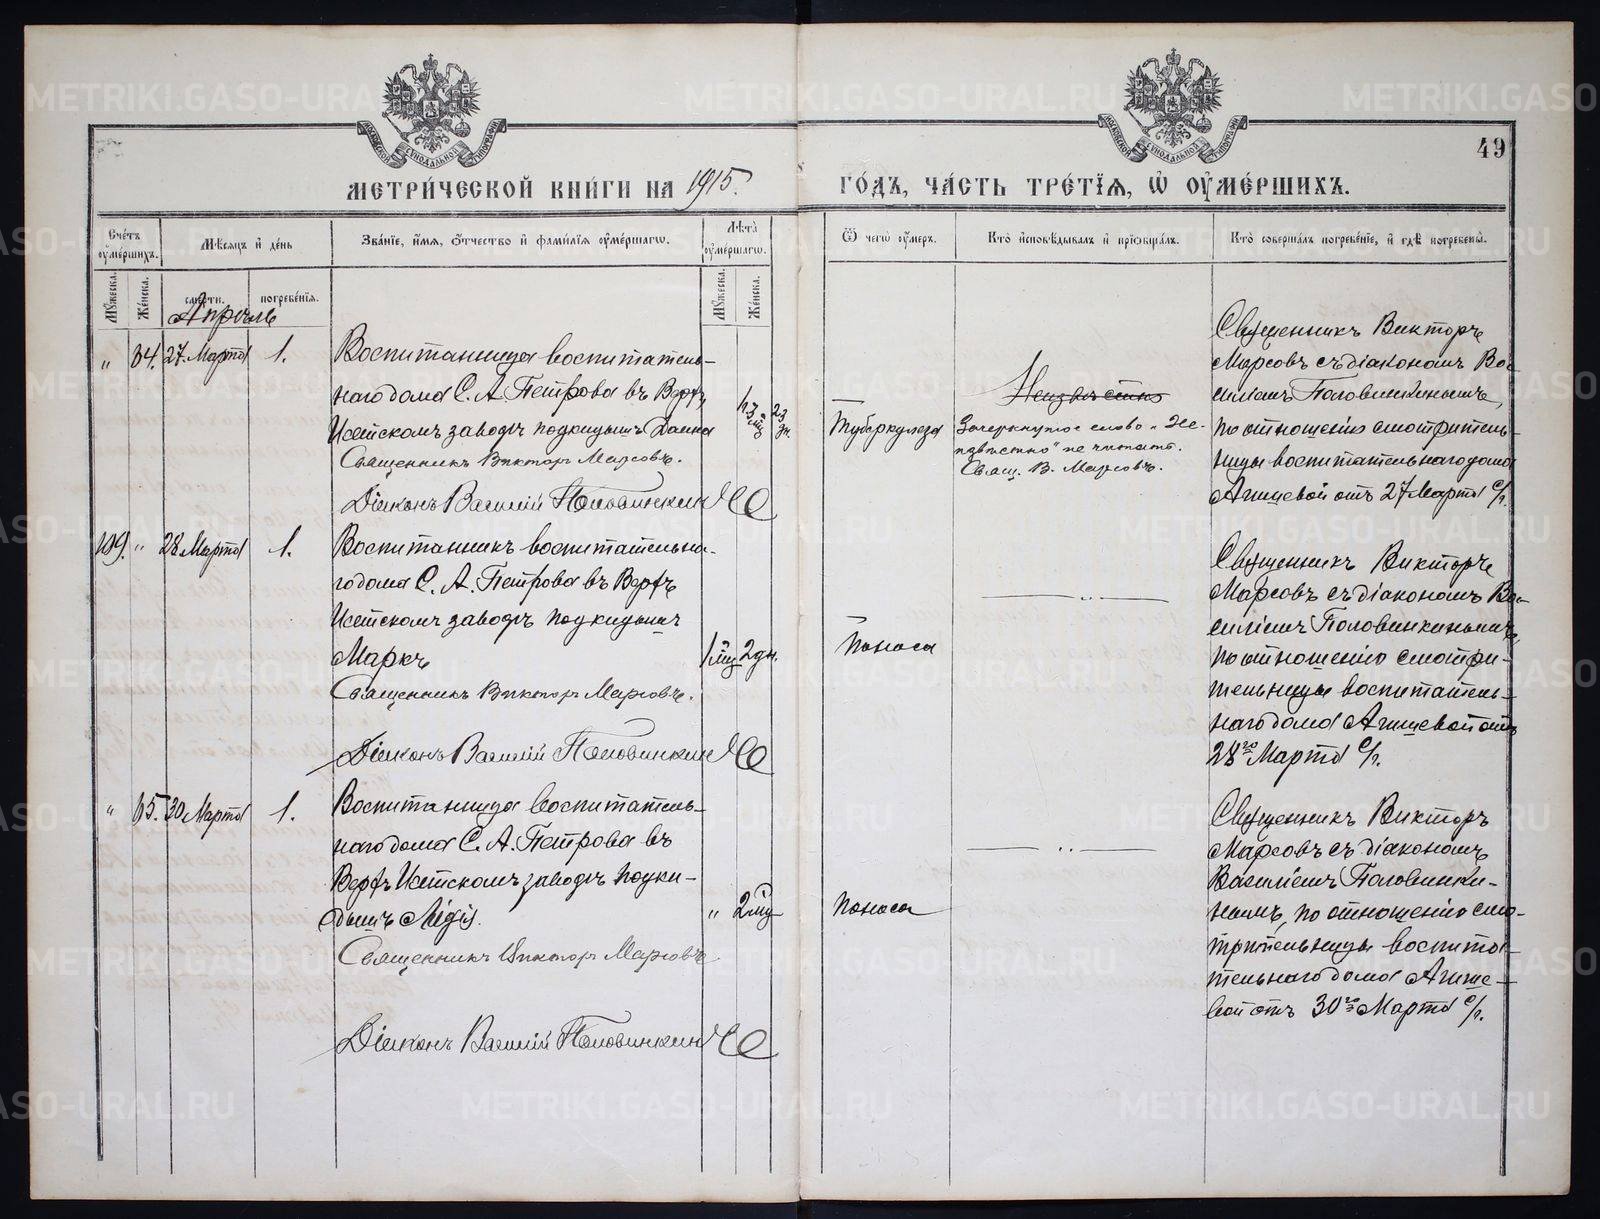 METRIKI.GASO-URAL.RU
МОСКОВСКОЙ СѴНОДАЛЬНОЙ ТИПОГРАФІИ
49
МЕТРИ́ЧЕСКОЙ КНИ́ГИ НА 1915.
ГО́ДЪ, ЧА́СТЬ ТРЕ́ТЇѦ, Ѡ҆ ОУ҆МЕ́РШИХЪ.
Сче́тъ оу҆ме́ршихъ.
Мѣ́сяцъ и҆ де́нь
Зва́нїе, и҆́мя, ѻ҆́тчество и҆ фами́лїя оу҆ме́ршагѡ.
Лѣ́та оу҆ме́ршагѡ.
Ѿ чегѡ̀ оу҆́меръ.
Кто̀ и҆сповѣ́дывалъ и҆ прїѡбща́лъ.
Кто̀ соверша́лъ погребе́нїе, и҆ гдѣ̀ погребены̀.
Мꙋ́жеска.
Же́нска.
сме́рти.
погребе́нїя.
Мꙋ́жеска.
Же́нска.
Апрѣль
„ 64. 27. Марта 1.
Воспитанница воспитатель-
наго дома С. А. Петрова въ Верхъ
Исетскомъ заводѣ подкидышъ
Священникъ Викторъ Марсовъ.
Діаконъ Василій Половинкинъ
23 дн.
Туберкулеза
Неизвѣстно
Зачеркнутое слово „Не-
извѣстно" не читать.
Свящ. В. Марсовъ.
Священникъ Викторъ
Марсовъ съ діакономъ Ва-
силіемъ Половинкинымъ,
по отношенію смотритель-
ницы воспитательнаго дома
Агишевой отъ 27 Марта с/г.
109. „ 28 Марта 1.
Воспитанникъ воспитательна-
го дома С. А. Петрова въ Верхъ
Исетскомъ заводѣ подкидышъ
Маркъ
Священникъ Викторъ Марсовъ.
Діаконъ Василій Половинкинъ
1 мц 2 дн.
Поноса
— „ —
Священникъ Викторъ
Марсовъ съ діакономъ Ва-
силіемъ Половинкинымъ,
по отношенію смотри-
тельницы воспитатель-
наго дома Агишевой отъ
28го Марта с/г.
„ 65. 30 Марта 1.
Воспитанница воспитатель-
наго дома С. А. Петрова въ
Верхъ Исетскомъ заводѣ подки-
дышъ Лидія.
Священникъ Викторъ Марсовъ
Діаконъ Василій Половинкинъ
„ 2 мц
Поноса
— „ —
Священникъ Викторъ
Марсовъ съ діакономъ
Василіемъ Половинки-
нымъ, по отношенію смо-
трительницы воспита-
тельнаго дома Агише-
вой отъ 30го Марта с/г.